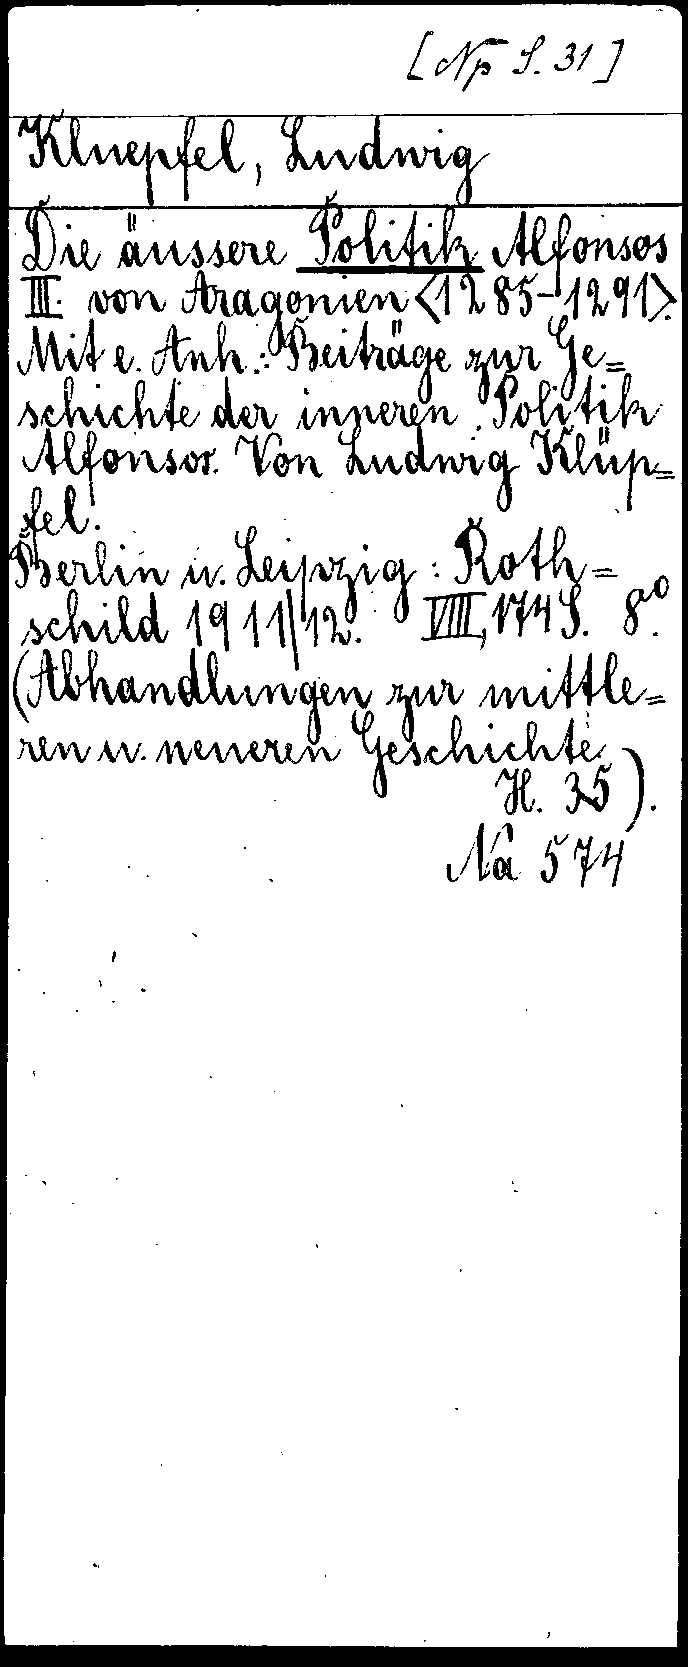 [Np S. 31]
Kluepfel, Ludwig
Die äussere Politik Alfonsos
III. von Aragonien <1285-1291>.
Mit e. Anh.: Beiträge zur Ge=
schichte der inneren Politik
Alfonsos. Von Ludwig Klüp=
fel.
Berlin u. Leipzig: Roth=
schild 1911/12. VIII, 174 S. 8°.
(Abhandlungen zur mittle=
ren u. neueren Geschichte.
H. 35).
Na 574